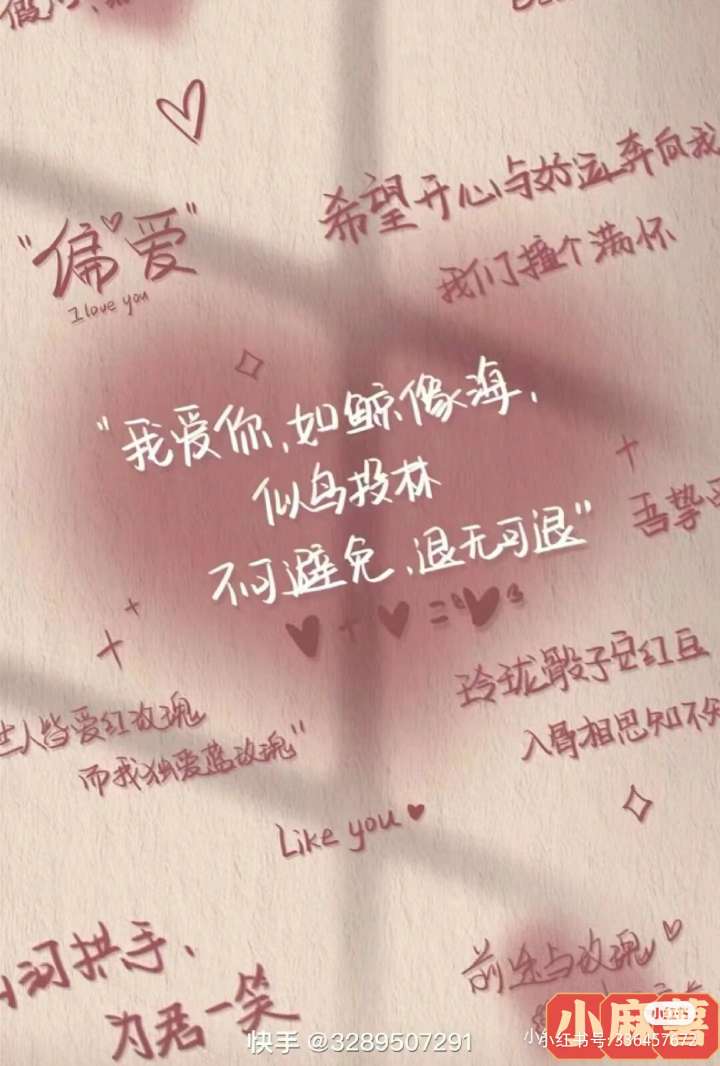 希望开心与好运奔向我
我们撞个满怀
"偏爱"
I love you
"我爱你,如鲸像海,
似鸟投林
不可避免,退无可退"
吾挚
玲珑骰子安红豆
入骨相思知不知
世人皆爱红玫瑰
而我独爱蓝玫瑰"
Like you
山河拱手,
为君一笑
前途与玫瑰
小红书
小麻薯
快手 @3289507291